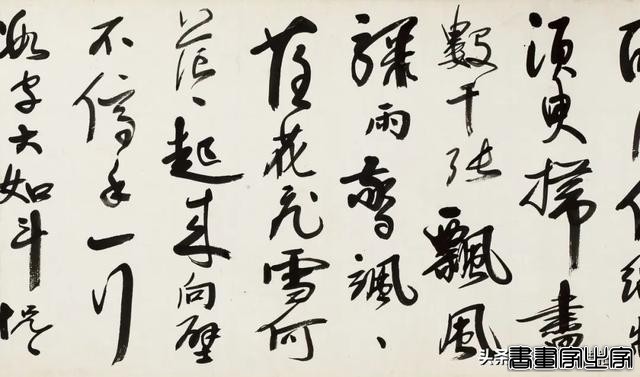 須臾掃盡
數千張飄風
驟雨驚颯〻
落花飛雪何
茫〻起來向壁
不停手一行
數字大如斗怳〻
頭条